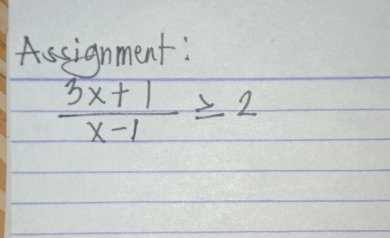 Assignment:
3x+1
x-1 ≥ 2